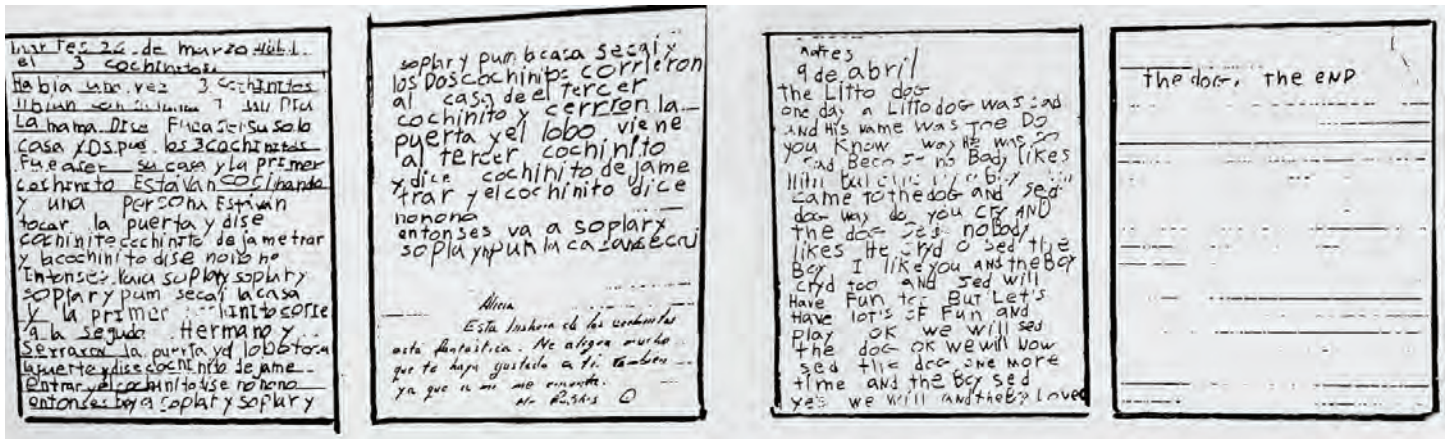 martes 26 de marzo
el 3 cochinitos
Había una vez 3 cochinitos
La mama Dise Fuca ser su solo
casa y Dspue los 3 cochinitos
Fue aser su casa y la primer
cochinito Estavan cocinando
y una persona Estivan
tocar la puerta y dise
cochinito cochinito dejametrar
y lacochinito dise no no no
Intonses soplar y soplar y
soplar y pum secai la casa
y la primer corre
a la segudo Hermano y
serraron la puerta yel lobo toca
lapuerta y dise cochinito dejame
entrar yel cochinito dise nonono
entonses boy a soplar y soplar y
soplar y pum lacasa secai y
los Dos cochinitos corrieron
al casa de el tercer
cochinito y cerrron la
puerta y el lobo viene
al tercer cochinito
y dice cochinito dejame
trar y el cochinito dice
nonono
entonses va a soplary
soplay pum la casa
Alicia
Esta historia de los cochinitos
está fantástica. Me alegra mucho
que te haya gustado a ti tambien
ya que a mi me encanta.
9 de abril
the Litto dog
one day a Litto dog was sad
AND His name was Joe Do
you Know way He was so
sad Becose no Body likes
Him But one day a Boy
came to the dog AND sed
dog way do you cry AND
the dog sed nobody
likes He cryd o sed the
Boy I like you AND the Boy
cryd too and sed will
Have Fun too But Let's
Have lot's of Fun and
play ok we will sed
the dog ok we will now
sed the dog one more
time and the Boy sed
yes we will and the Boy Loved
the dog, the eND